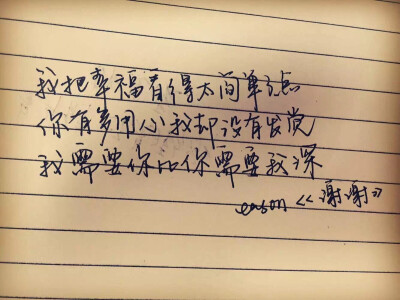 我把幸福看得太简单了点
你有多用心我却没有发觉
我需要你比你需要我深
eason 《谢谢》